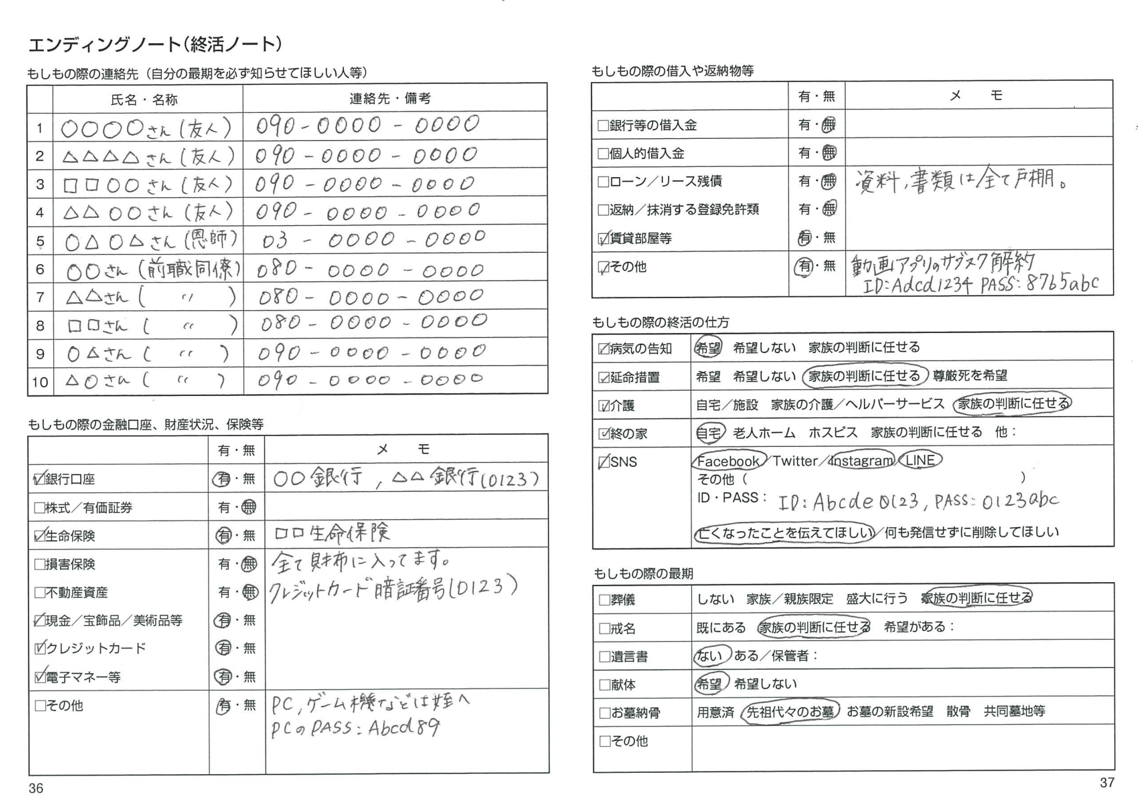 エンディングノート(終活ノート)
もしもの際の連絡先(自分の最期を必ず知らせてほしい人等)
氏名・名称 連絡先・備考
1 〇〇〇〇さん(友人) 090-0000-0000
2 △△△△さん(友人) 090-0000-0000
3 □□〇〇さん(友人) 090-0000-0000
4 △△〇〇さん(友人) 090-0000-0000
5 〇△〇△さん(恩師) 03-0000-0000
6 〇〇さん(前職同僚) 080-0000-0000
7 △△さん( 〃 ) 080-0000-0000
8 □□さん( 〃 ) 080-0000-0000
9 〇△さん( 〃 ) 090-0000-0000
10 △〇さん( 〃 ) 090-0000-0000
もしもの際の金融口座、財産状況、保険等
有・無 メモ
☑銀行口座 有・無 〇〇銀行, △△銀行(0123)
□株式/有価証券 有・無
☑生命保険 有・無 □□生命保険
□損害保険 有・無 全て財布に入ってます。
□不動産資産 有・無 クレジットカード暗証番号(0123)
☑現金/宝飾品/美術品等 有・無
☑クレジットカード 有・無
☑電子マネー等 有・無
□その他 有・無 PC,ゲーム機などは姪へ
PCのPASS:Abcd89
36
もしもの際の借入や返納物等
有・無 メモ
□銀行等の借入金 有・無
□個人的借入金 有・無
□ローン/リース残債 有・無 資料,書類は全て戸棚。
□返納/抹消する登録免許類 有・無
☑賃貸部屋等 有・無
☑その他 有・無 動画アプリのサブスク解約
ID:Adcd1234 PASS:8765abc
もしもの際の終活の仕方
☑病気の告知 希望 希望しない 家族の判断に任せる
☑延命措置 希望 希望しない 家族の判断に任せる 尊厳死を希望
☑介護 自宅/施設 家族の介護/ヘルパーサービス 家族の判断に任せる
☑終の家 自宅 老人ホーム ホスピス 家族の判断に任せる 他:
☑SNS Facebook/Twitter/Instagram/LINE
その他( )
ID・PASS: ID:Abcde0123, PASS:0123abc
亡くなったことを伝えてほしい/何も発信せずに削除してほしい
もしもの際の最期
□葬儀 しない 家族/親族限定 盛大に行う 家族の判断に任せる
□戒名 既にある 家族の判断に任せる 希望がある:
□遺言書 ない ある/保管者:
□献体 希望 希望しない
□お墓納骨 用意済 先祖代々のお墓 お墓の新設希望 散骨 共同墓地等
□その他
37